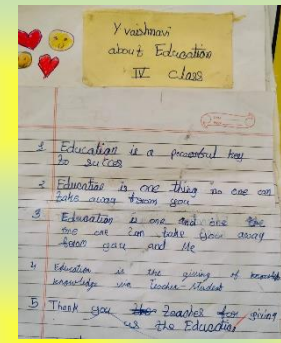 Y vaishnavi
about Education
IV class
1 Education is a powerful key
to succes
2 Education is one thing no one can
take away from you
3 Education is one and one the
one can take your away
from you and Me
4 Education is the giving of
knowledge we Teacher Student
5 Thank you teacher for giving
us the Education